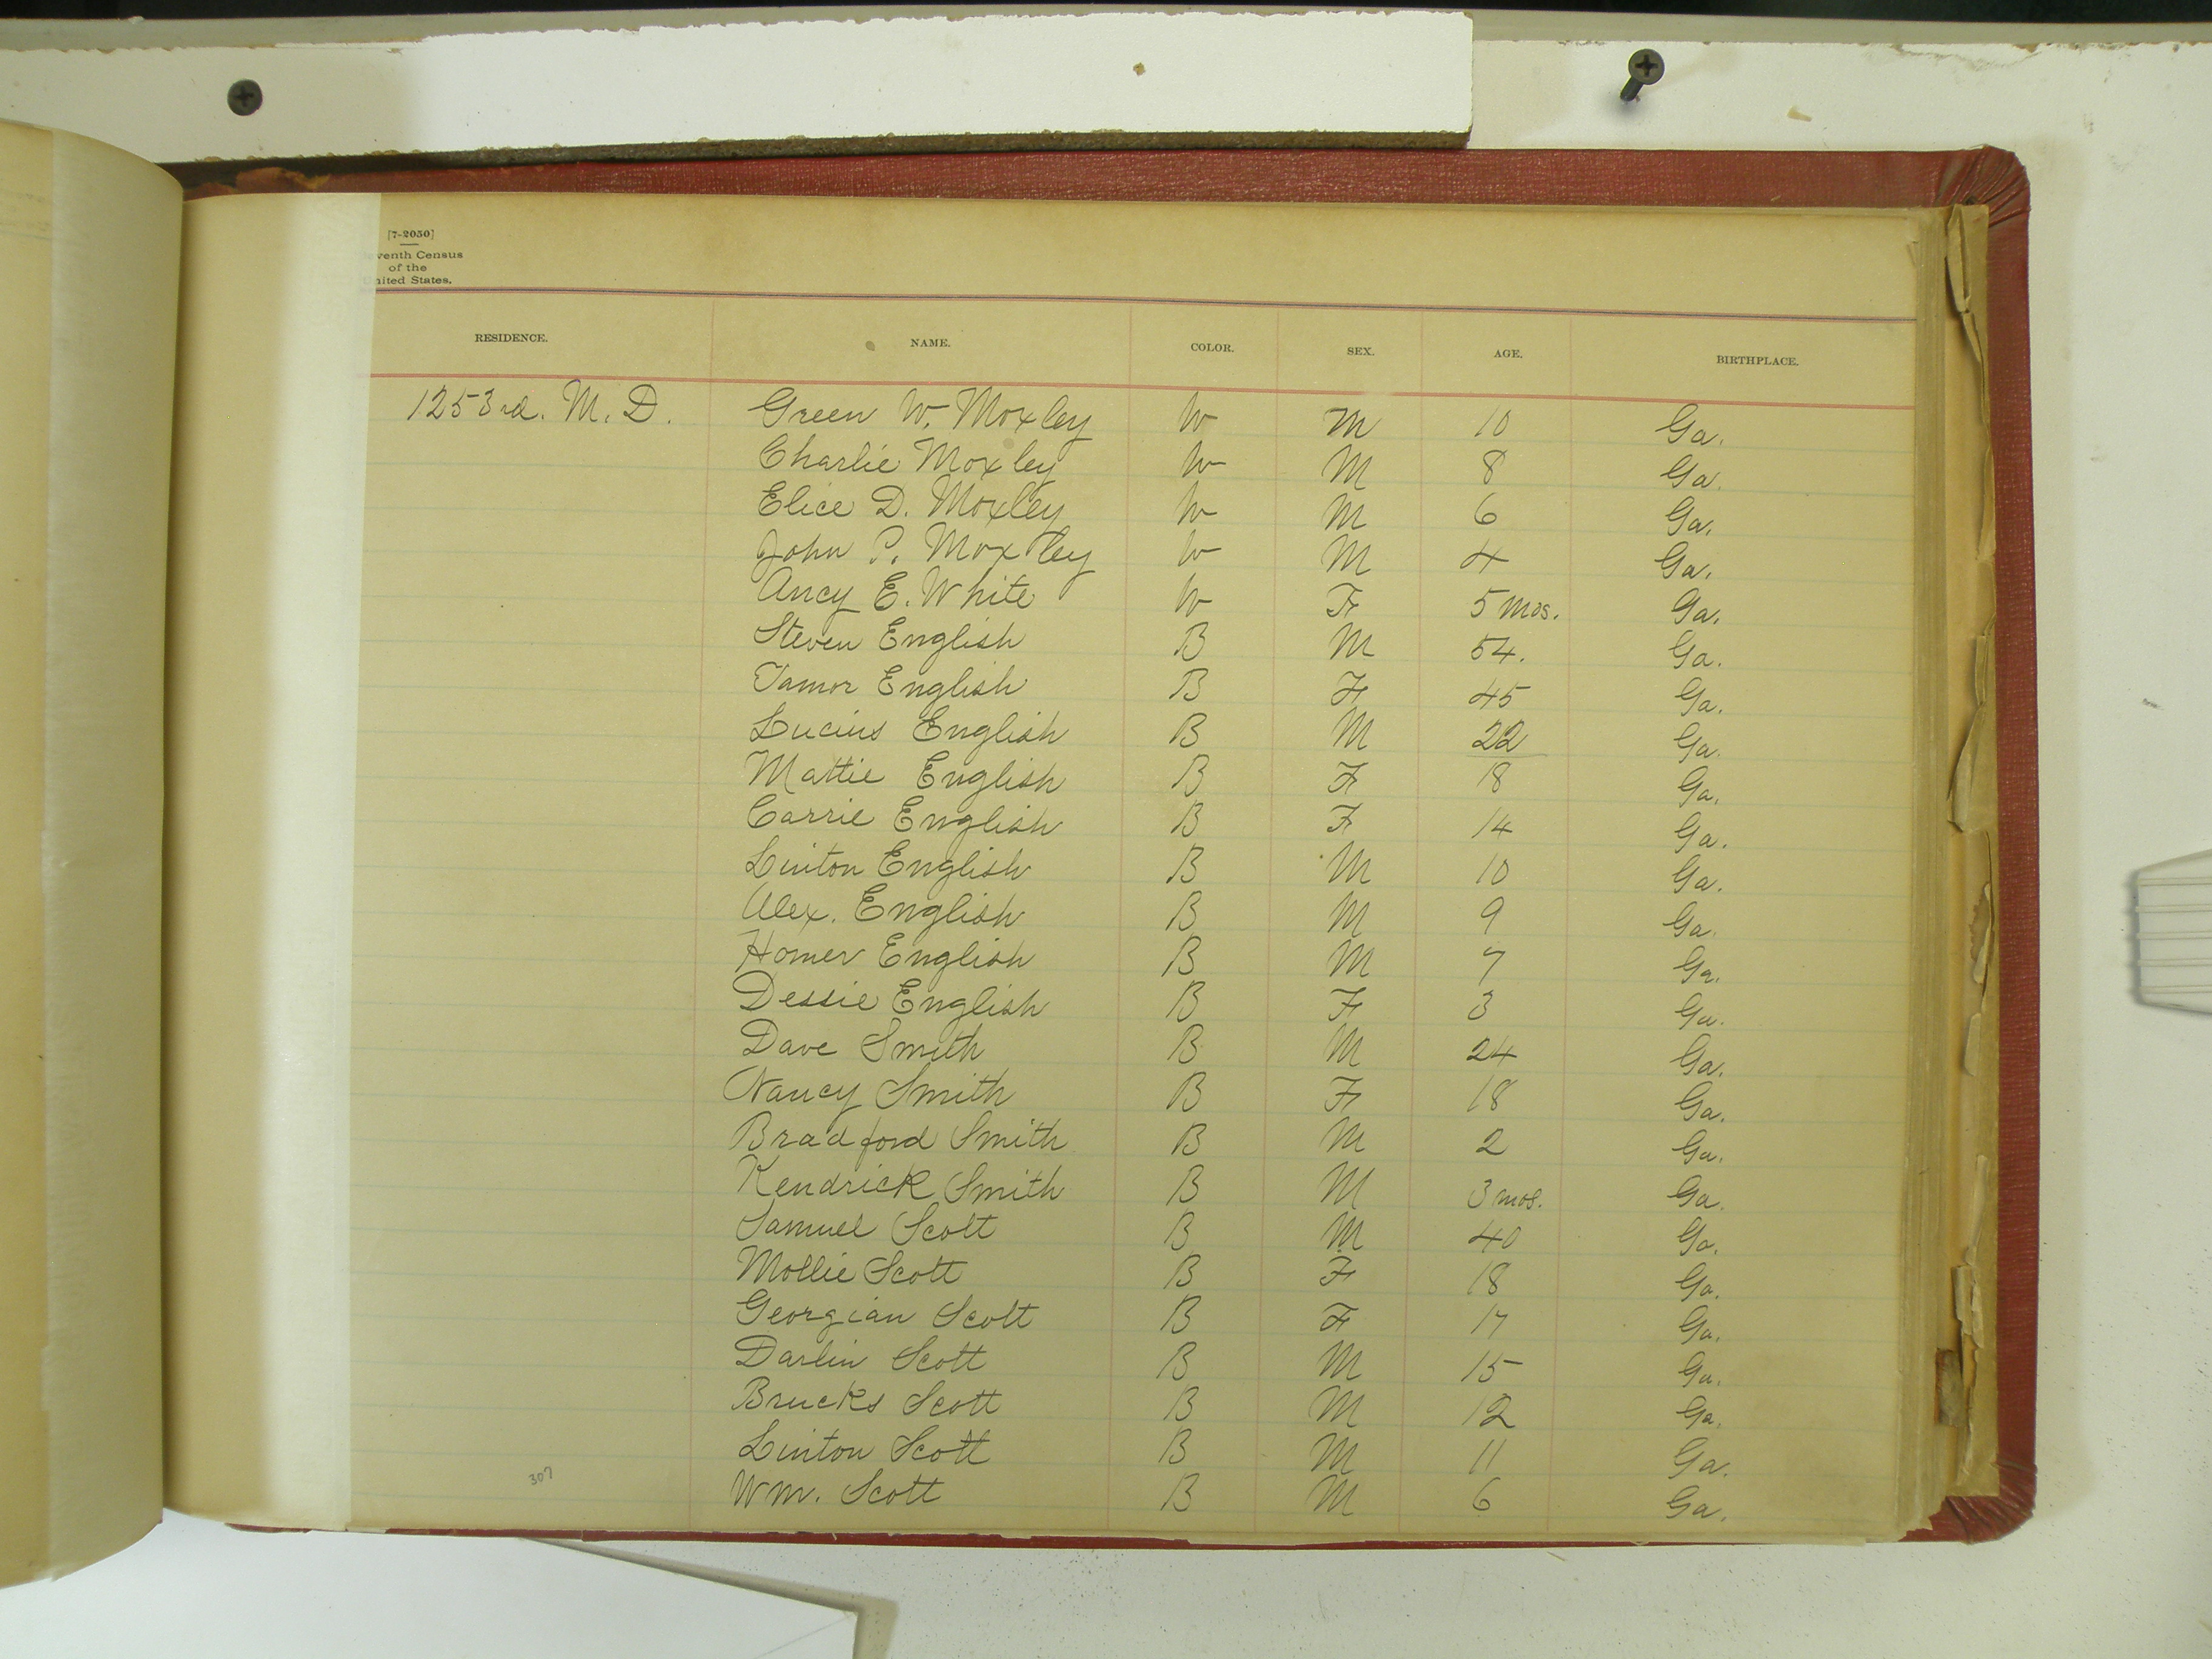 [7-2050]
venth Census
of the
nited States.
RESIDENCE. NAME. COLOR. SEX. AGE. BIRTHPLACE.
1253rd. M. D. Green W. Moxley W M 10 Ga.
Charlie Moxley W M 8 Ga.
Elice D. Moxley W M 6 Ga.
John P. Moxley W M 4 Ga.
Ancy E. White W F 5 mos. Ga.
Steven English B M 54. Ga.
Tamor English B F 45 Ga.
Lucius English B M 22 Ga.
Mattie English B F 18 Ga.
Carrie English B F 14 Ga.
Linton English B M 10 Ga.
Alex. English B M 9 Ga.
Homer English B M 7 Ga.
Dessie English B F 3 Ga.
Dave Smith B M 24 Ga.
Nancy Smith B F 18 Ga.
Bradford Smith B M 2 Ga.
Kendrick Smith B M 3 mos. Ga.
Samuel Scott B M 40 Ga.
Mollie Scott B F 18 Ga.
Georgian Scott B F 17 Ga.
Darlin Scott B M 15 Ga.
Brucks Scott B M 12 Ga.
Linton Scott B M 11 Ga.
Wm. Scott B M 6 Ga.
307